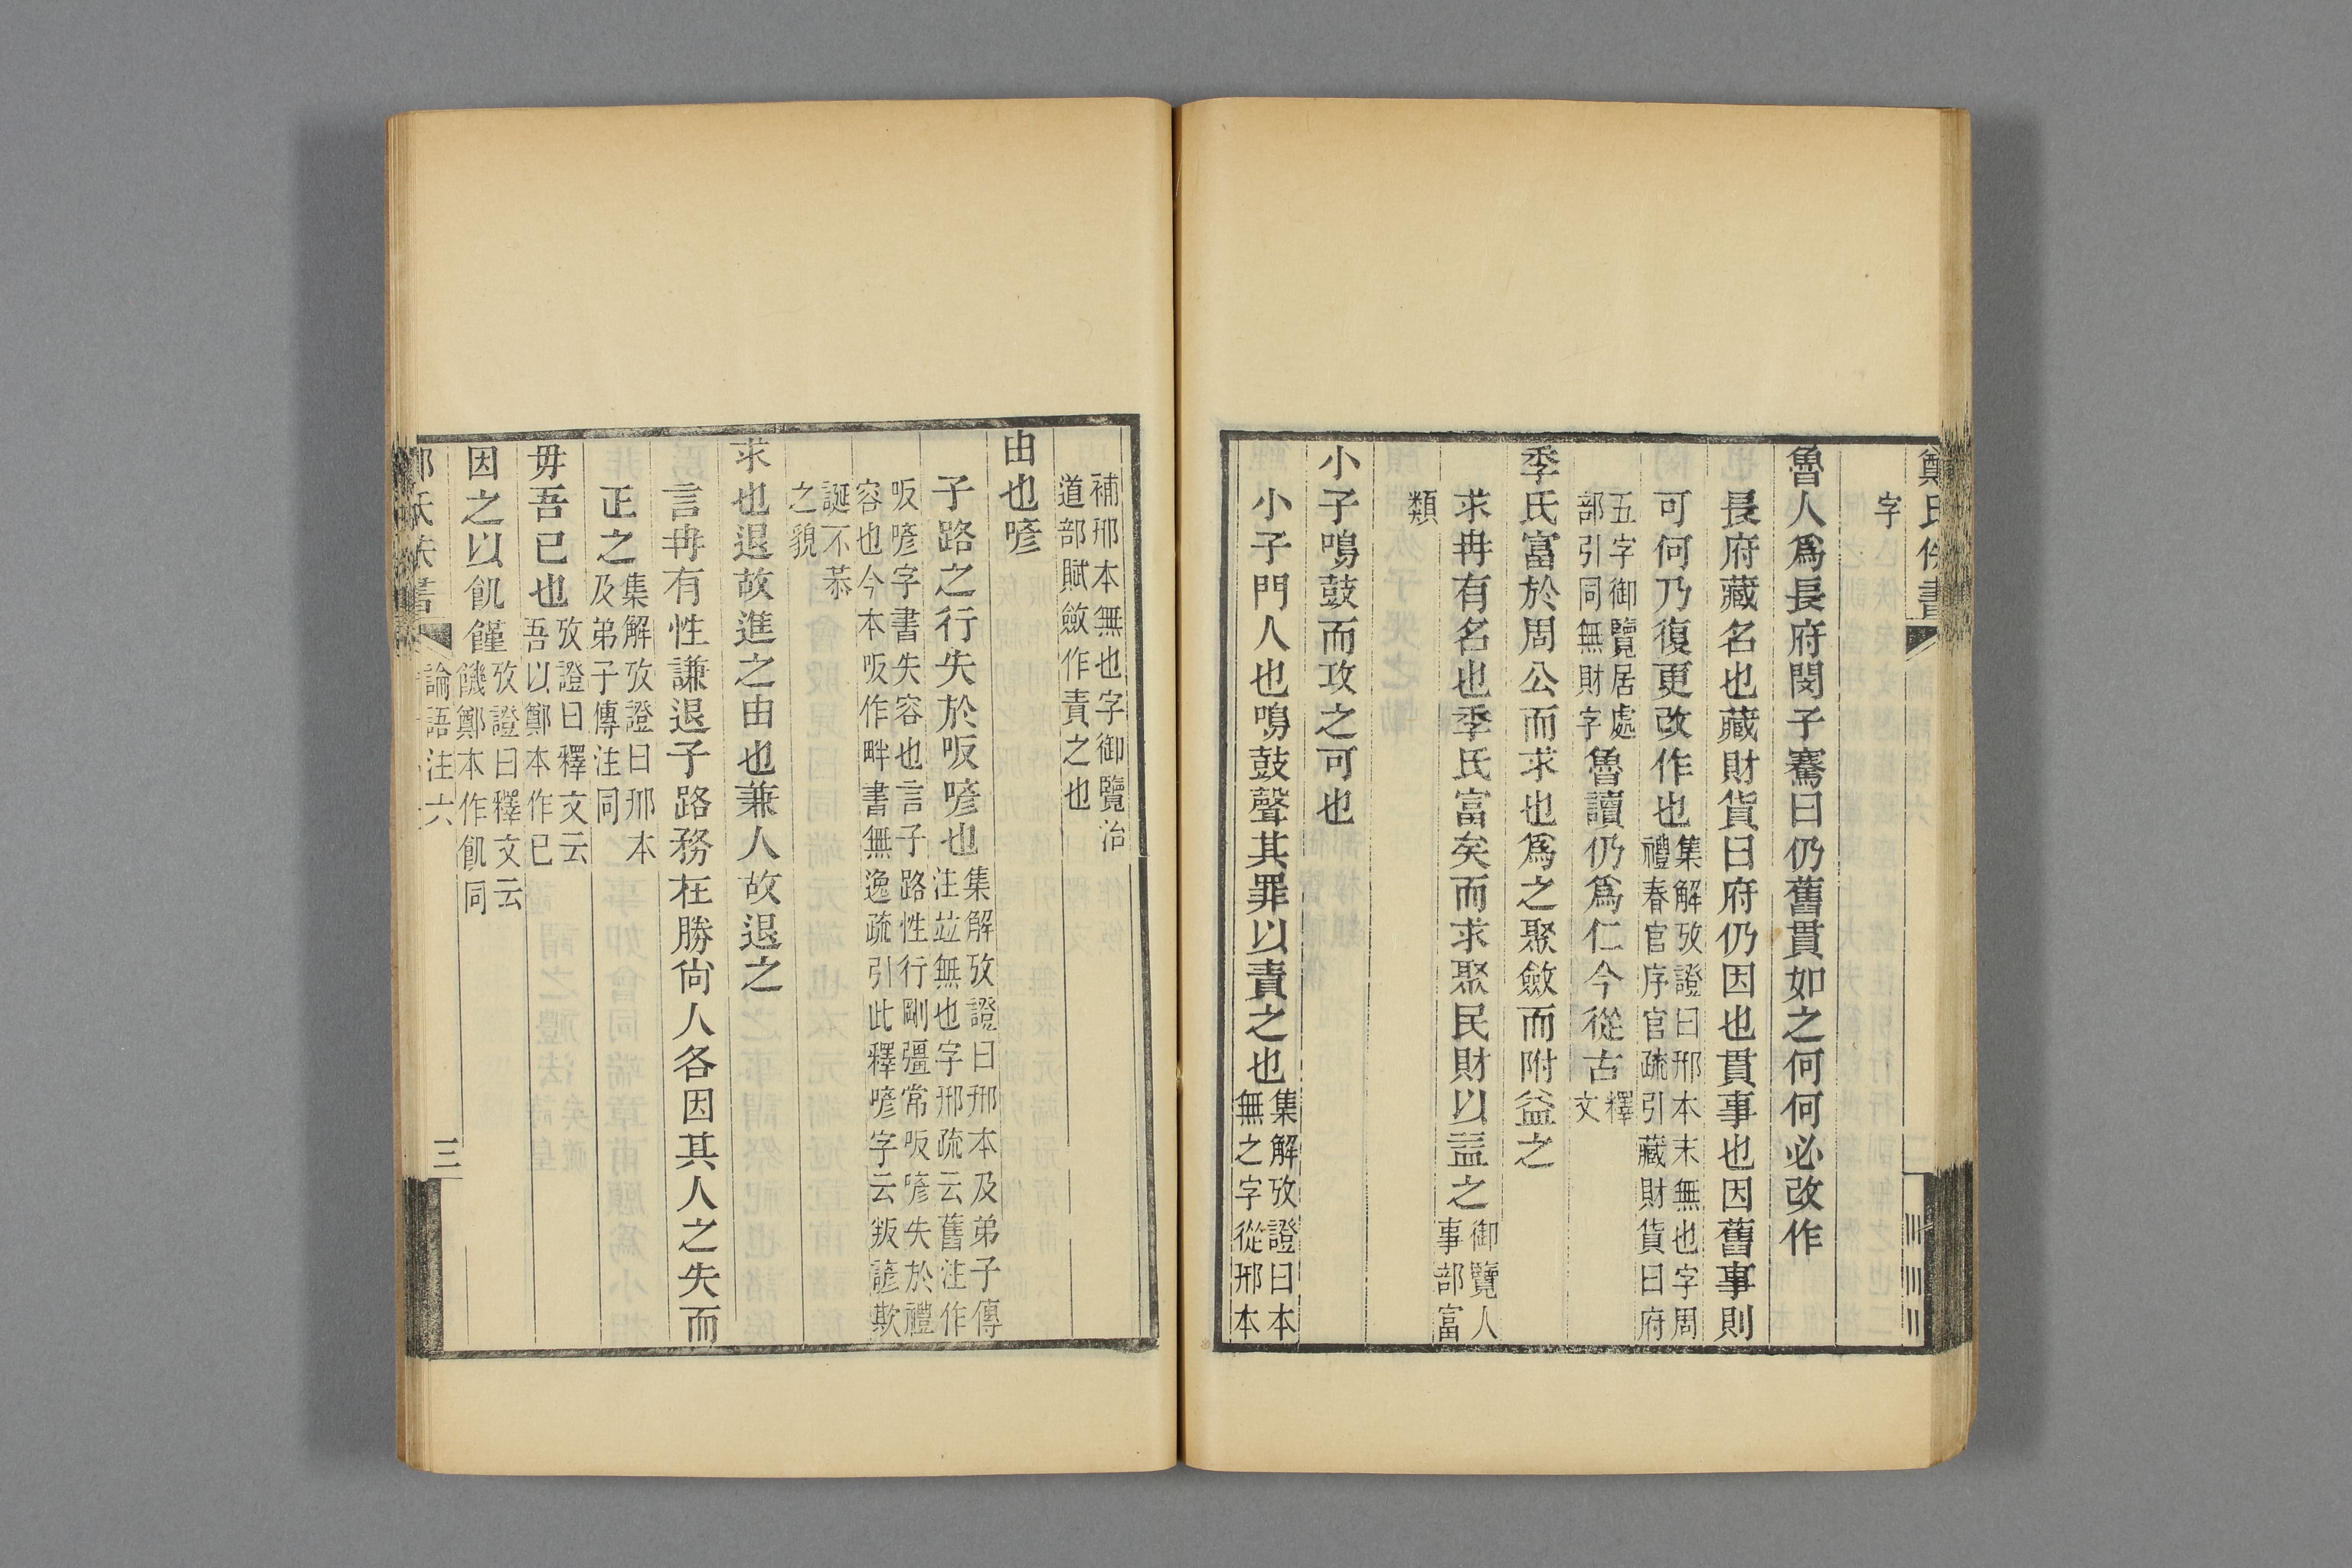 鄭氏佚書
字
魯人爲長府閔子騫曰仍舊貫如之何何必改作
長府藏名也藏財貨曰府仍因也貫事也因舊事則
可何乃復更改作也集解攷證曰邢本末無也字周禮春官序官疏引藏財貨曰府
五字御覽居處部引同無財字魯讀仍爲仁今從古釋文
季氏富於周公而求也爲之聚斂而附益之
求冉有名也季氏富矣而求聚民財以益之御覽人事部富
類
小子鳴鼓而攻之可也
小子門人也鳴鼓聲其罪以責之也集解攷證曰本無之字從邢本
補邢本無也字御覽治道部賦斂作責之也
由也喭
子路之行失於昄喭也集解攷證曰邢本及弟子傳注竝無也字邢疏云舊注作
昄喭字書失容也言子路性行剛彊常昄喭失於禮容也今本昄作畔書無逸疏引此釋喭字云叛諺欺
誕不恭之貌
求也退故進之由也兼人故退之
言冉有性謙退子路務在勝尙人各因其人之失而
正之集解攷證曰邢本及弟子傳注同
毋吾已也攷證曰釋文云吾以鄭本作已
因之以飢饉攷證曰釋文云饑鄭本作飢同
論語注六
三